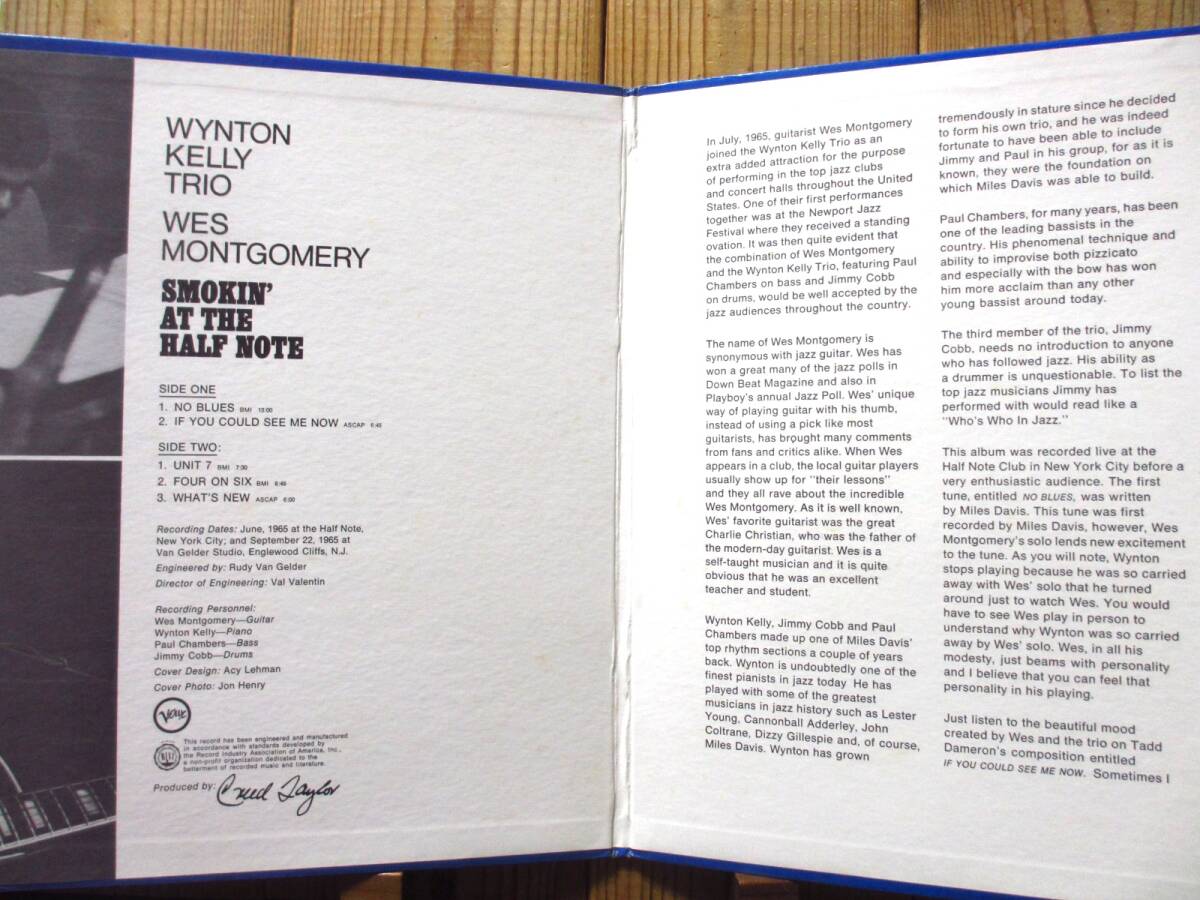 WYNTON
KELLY
TRIO
WES
MONTGOMERY
SMOKIN'
AT THE
HALF NOTE
SIDE ONE
1. NO BLUES BMI 13:00
2. IF YOU COULD SEE ME NOW ASCAP 6:45
SIDE TWO:
1. UNIT 7 BMI 7:30
2. FOUR ON SIX BMI 6:45
3. WHAT'S NEW ASCAP 6:00
Recording Dates: June, 1965 at the Half Note,
New York City; and September 22, 1965 at
Van Gelder Studio, Englewood Cliffs, N.J.
Engineered by: Rudy Van Gelder
Director of Engineering: Val Valentin
Recording Personnel:
Wes Montgomery—Guitar
Wynton Kelly—Piano
Paul Chambers—Bass
Jimmy Cobb—Drums
Cover Design: Acy Lehman
Cover Photo: Jon Henry
Verve
This record has been engineered and manufactured
in accordance with standards developed by
the Record Industry Association of America, Inc.,
a non-profit organization dedicated to the
betterment of recorded music and literature.
Produced by: Creed Taylor
In July, 1965, guitarist Wes Montgomery
joined the Wynton Kelly Trio as an
extra added attraction for the purpose
of performing in the top jazz clubs
and concert halls throughout the United
States. One of their first performances
together was at the Newport Jazz
Festival where they received a standing
ovation. It was then quite evident that
the combination of Wes Montgomery
and the Wynton Kelly Trio, featuring Paul
Chambers on bass and Jimmy Cobb
on drums, would be well accepted by the
jazz audiences throughout the country.
The name of Wes Montgomery is
synonymous with jazz guitar. Wes has
won a great many of the jazz polls in
Down Beat Magazine and also in
Playboy's annual Jazz Poll. Wes' unique
way of playing guitar with his thumb,
instead of using a pick like most
guitarists, has brought many comments
from fans and critics alike. When Wes
appears in a club, the local guitar players
usually show up for "their lessons"
and they all rave about the incredible
Wes Montgomery. As it is well known,
Wes' favorite guitarist was the great
Charlie Christian, who was the father of
the modern-day guitarist. Wes is a
self-taught musician and it is quite
obvious that he was an excellent
teacher and student.
Wynton Kelly, Jimmy Cobb and Paul
Chambers made up one of Miles Davis'
top rhythm sections a couple of years
back. Wynton is undoubtedly one of the
finest pianists in jazz today. He has
played with some of the greatest
musicians in jazz history such as Lester
Young, Cannonball Adderley, John
Coltrane, Dizzy Gillespie and, of course,
Miles Davis. Wynton has grown
tremendously in stature since he decided
to form his own trio, and he was indeed
fortunate to have been able to include
Jimmy and Paul in his group, for as it is
known, they were the foundation on
which Miles Davis was able to build.
Paul Chambers, for many years, has been
one of the leading bassists in the
country. His phenomenal technique and
ability to improvise both pizzicato
and especially with the bow has won
him more acclaim than any other
young bassist around today.
The third member of the trio, Jimmy
Cobb, needs no introduction to anyone
who has followed jazz. His ability as
a drummer is unquestionable. To list the
top jazz musicians Jimmy has
performed with would read like a
"Who's Who In Jazz."
This album was recorded live at the
Half Note Club in New York City before a
very enthusiastic audience. The first
tune, entitled NO BLUES, was written
by Miles Davis. This tune was first
recorded by Miles Davis, however, Wes
Montgomery's solo lends new excitement
to the tune. As you will note, Wynton
stops playing because he was so carried
away with Wes' solo that he turned
around just to watch Wes. You would
have to see Wes play in person to
understand why Wynton was so carried
away by Wes' solo. Wes, in all his
modesty, just beams with personality
and I believe that you can feel that
personality in his playing.
Just listen to the beautiful mood
created by Wes and the trio on Tadd
Dameron's composition entitled
IF YOU COULD SEE ME NOW. Sometimes I